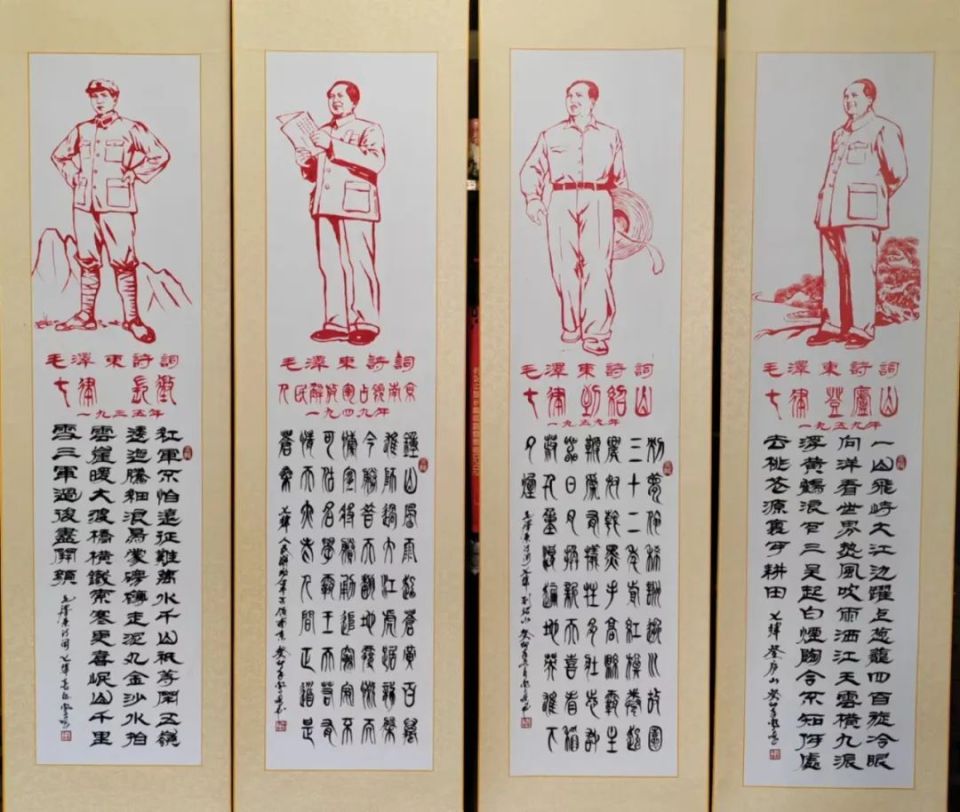 毛澤東詩詞
七律 長征
一九三五年
紅軍不怕遠征難萬水千山祇等閑五嶺
逶迤騰細浪烏蒙磅礴走泥丸金沙水拍
雲崖暖大渡橋橫鐵索寒更喜岷山千里
雪三軍過後盡開顏
毛澤東詩詞 七律 長征
毛澤東詩詞
人民解放軍占領南京
一九四九年
鐘山風雨起蒼黃百萬
雄師過大江虎踞龍盤
今勝昔天翻地覆慨而
慷宜將勝勇追窮寇不
可沽名學霸王天若有
情天亦老人間正道是
蒼桑
七律 人民解放軍占領南京
毛澤東詩詞
七律 到韶山
一九五九年
別夢依稀咒逝川故園
三十二年前紅旗卷起
農奴戟黑手高懸霸主
鞭為有犧牲多壯志敢
教日月換新天喜看稻
菽千重浪遍地英雄下
夕煙
毛澤東詩詞 七律 到韶山
毛澤東詩詞
七律 登廬山
一九五九年
一山飛峙大江邊躍上蔥蘢四百旋冷眼
向洋看世界熱風吹雨灑江天雲橫九派
浮黃鶴浪下三吳起白煙陶令不知何處
去桃花源裏可耕田
七律 登廬山